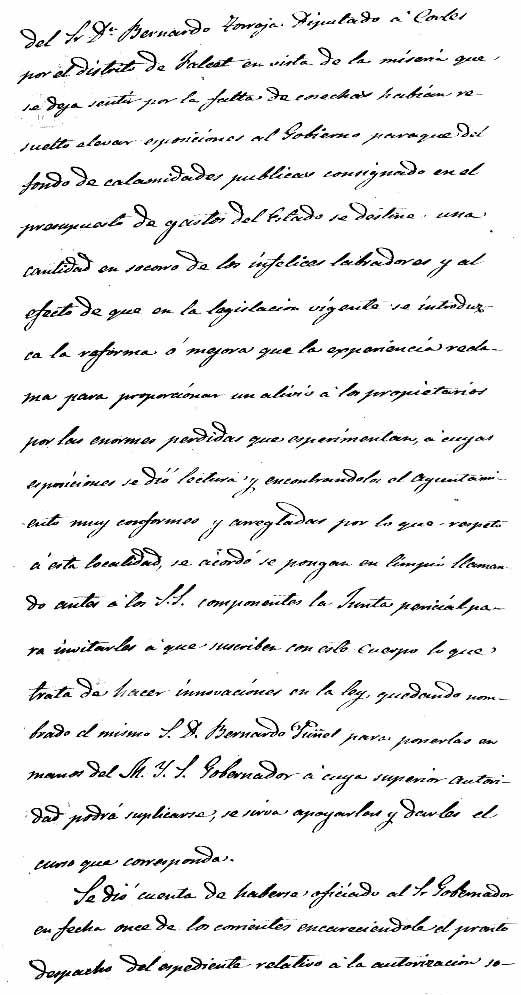 del Sr Dn Bernardo Torroja Diputado á Cortes
por el distrito de Falset en vista de la miseria que,
se deja sentir por la falta de cosechas habian re-
suelto elevar esposiciones al Gobierno para que del
fondo de calamidades publicas consignado en el
presupuesto de gastos del Estado se destine una
cantidad en socorro de los infelices labradores y al
efecto de que en la legislacion vigente se introduz-
ca la reforma ó mejora que la experiencia recla-
ma para proporcionar un alivio á los propietarios
por las enormes perdidas que esperimentan, á cuyas
esposiciones se dió lectura y encontrandolas el Ayuntami-
ento muy conformes y arregladas por lo que respeta
á esta localidad, se acordó se pongan en limpio llaman-
do antes á los S.S. componentes la Junta pericial pa-
ra invitarles á que suscriben con este cuerpo lo que
trata de hacer innovaciones en la ley, quedando nom-
brado el mismo S. D. Bernardo Puñol para ponerlas en
manos del M. Y. S. Gobernador á cuya superior autori-
dad podrá suplicarse, se sirva apoyarlas y darles el
curso que corresponda.
Se dió cuenta de haberse oficiado al Sr Gobernador
en fecha once de los corrientes encareciendole el pronto
despacho del espediente relativo á la autorizacion so-